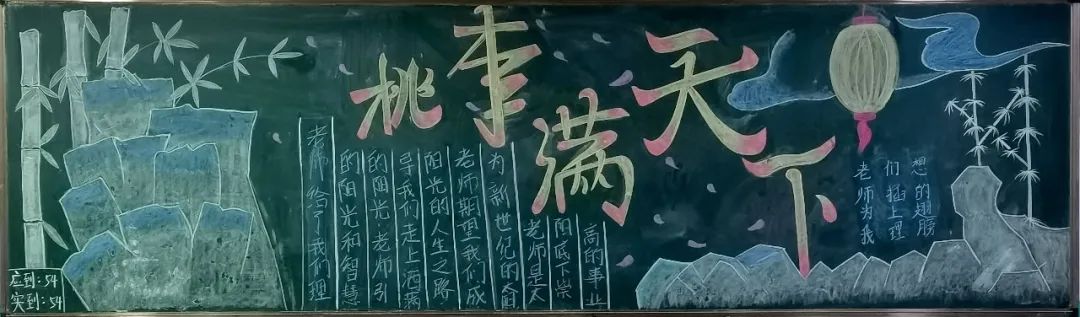 桃李满天下
老师给了我们理
的阳光和智慧
的阳光老师引
导我们走上洒满
阳光的人生之路
老师期望我们成
为新世纪的太阳
老师是太
阳底下崇
高的事业
老师为我
们插上理
想的翅膀
应到:54
实到:54